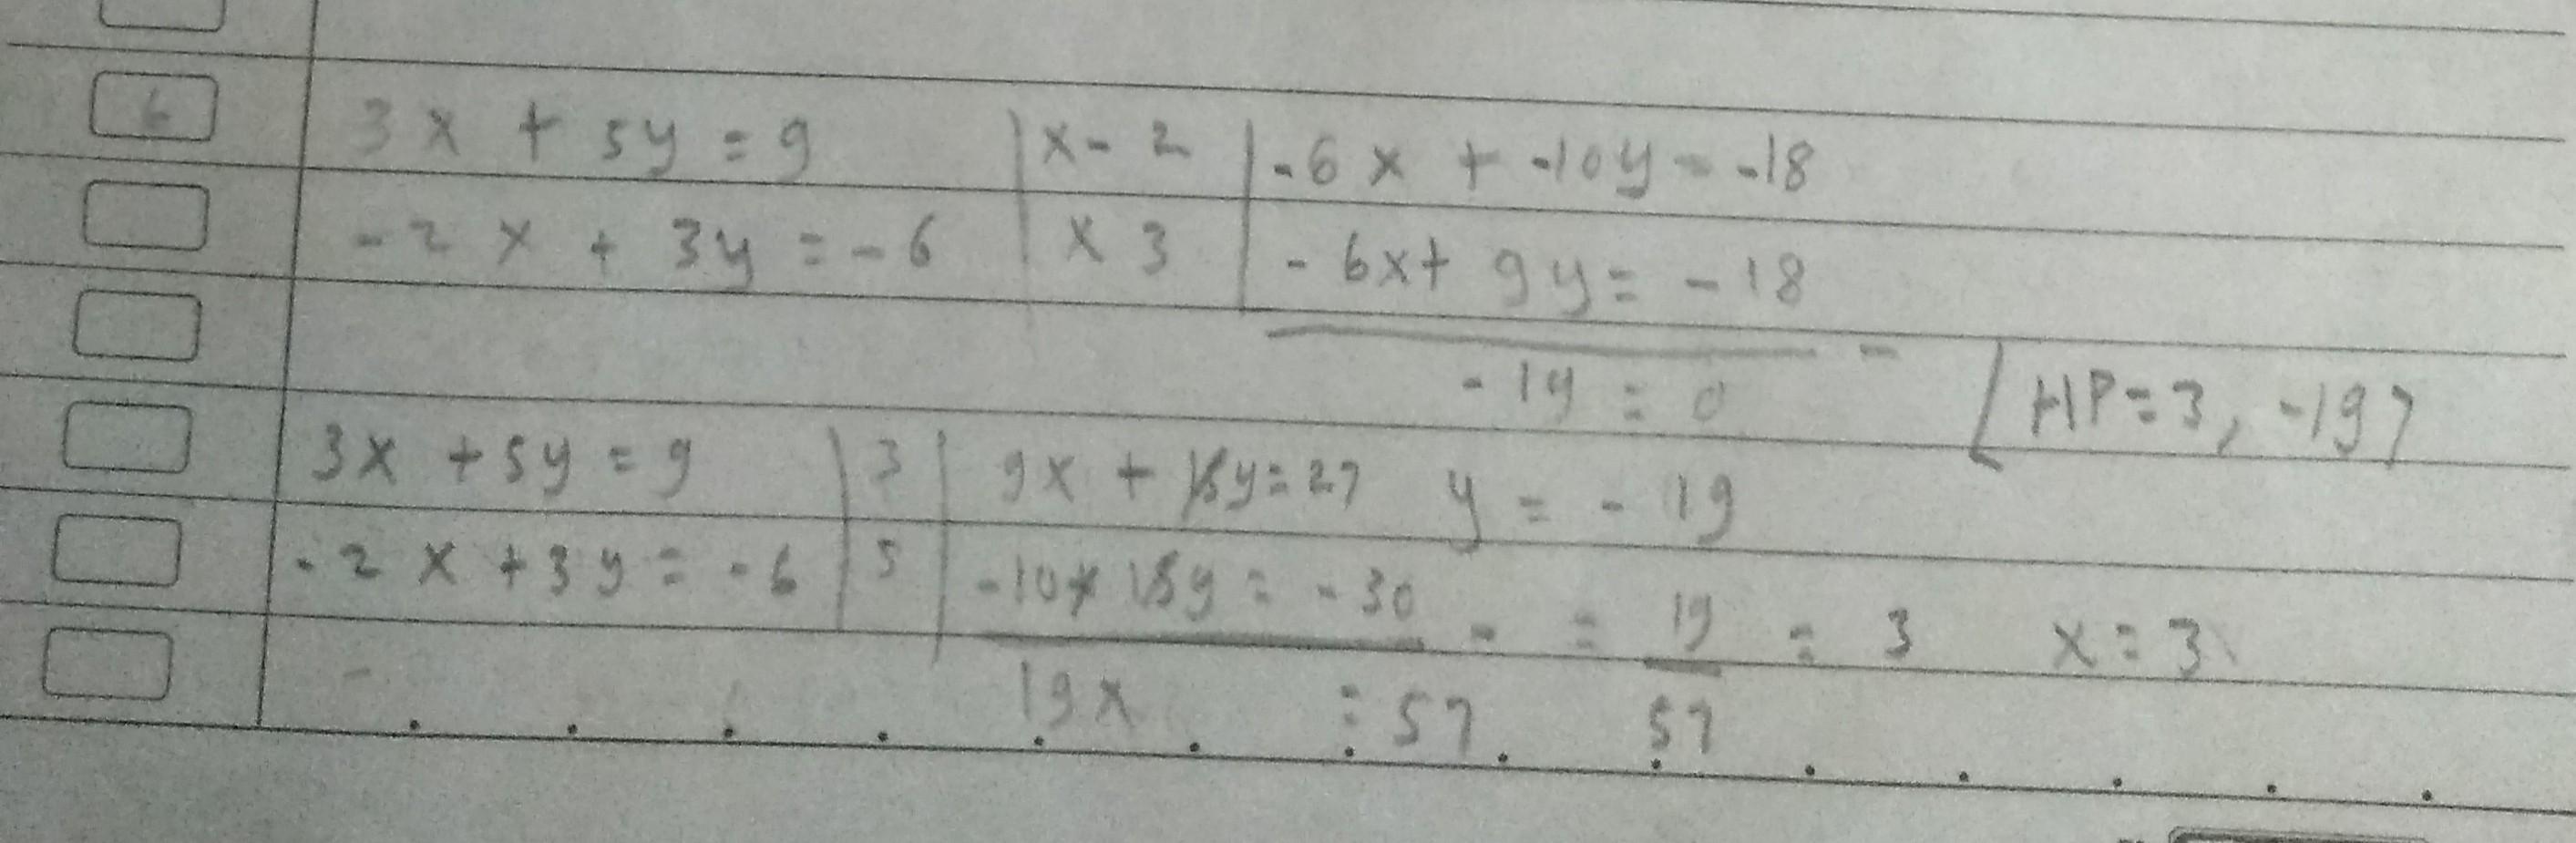 6 3x + 5y = 9 | x - 2 | -6x + -10y = -18
-2x + 3y = -6 | x 3 | -6x + 9y = -18
-19 = 0 -
[HP = 3, -19}
3x + 5y = 9 | 3 | 9x + 15y = 27 y = -19
-2x + 3y = -6 | 5 | -10x 15y = -30 - = 19/57 = 3 x = 3
19x = 57